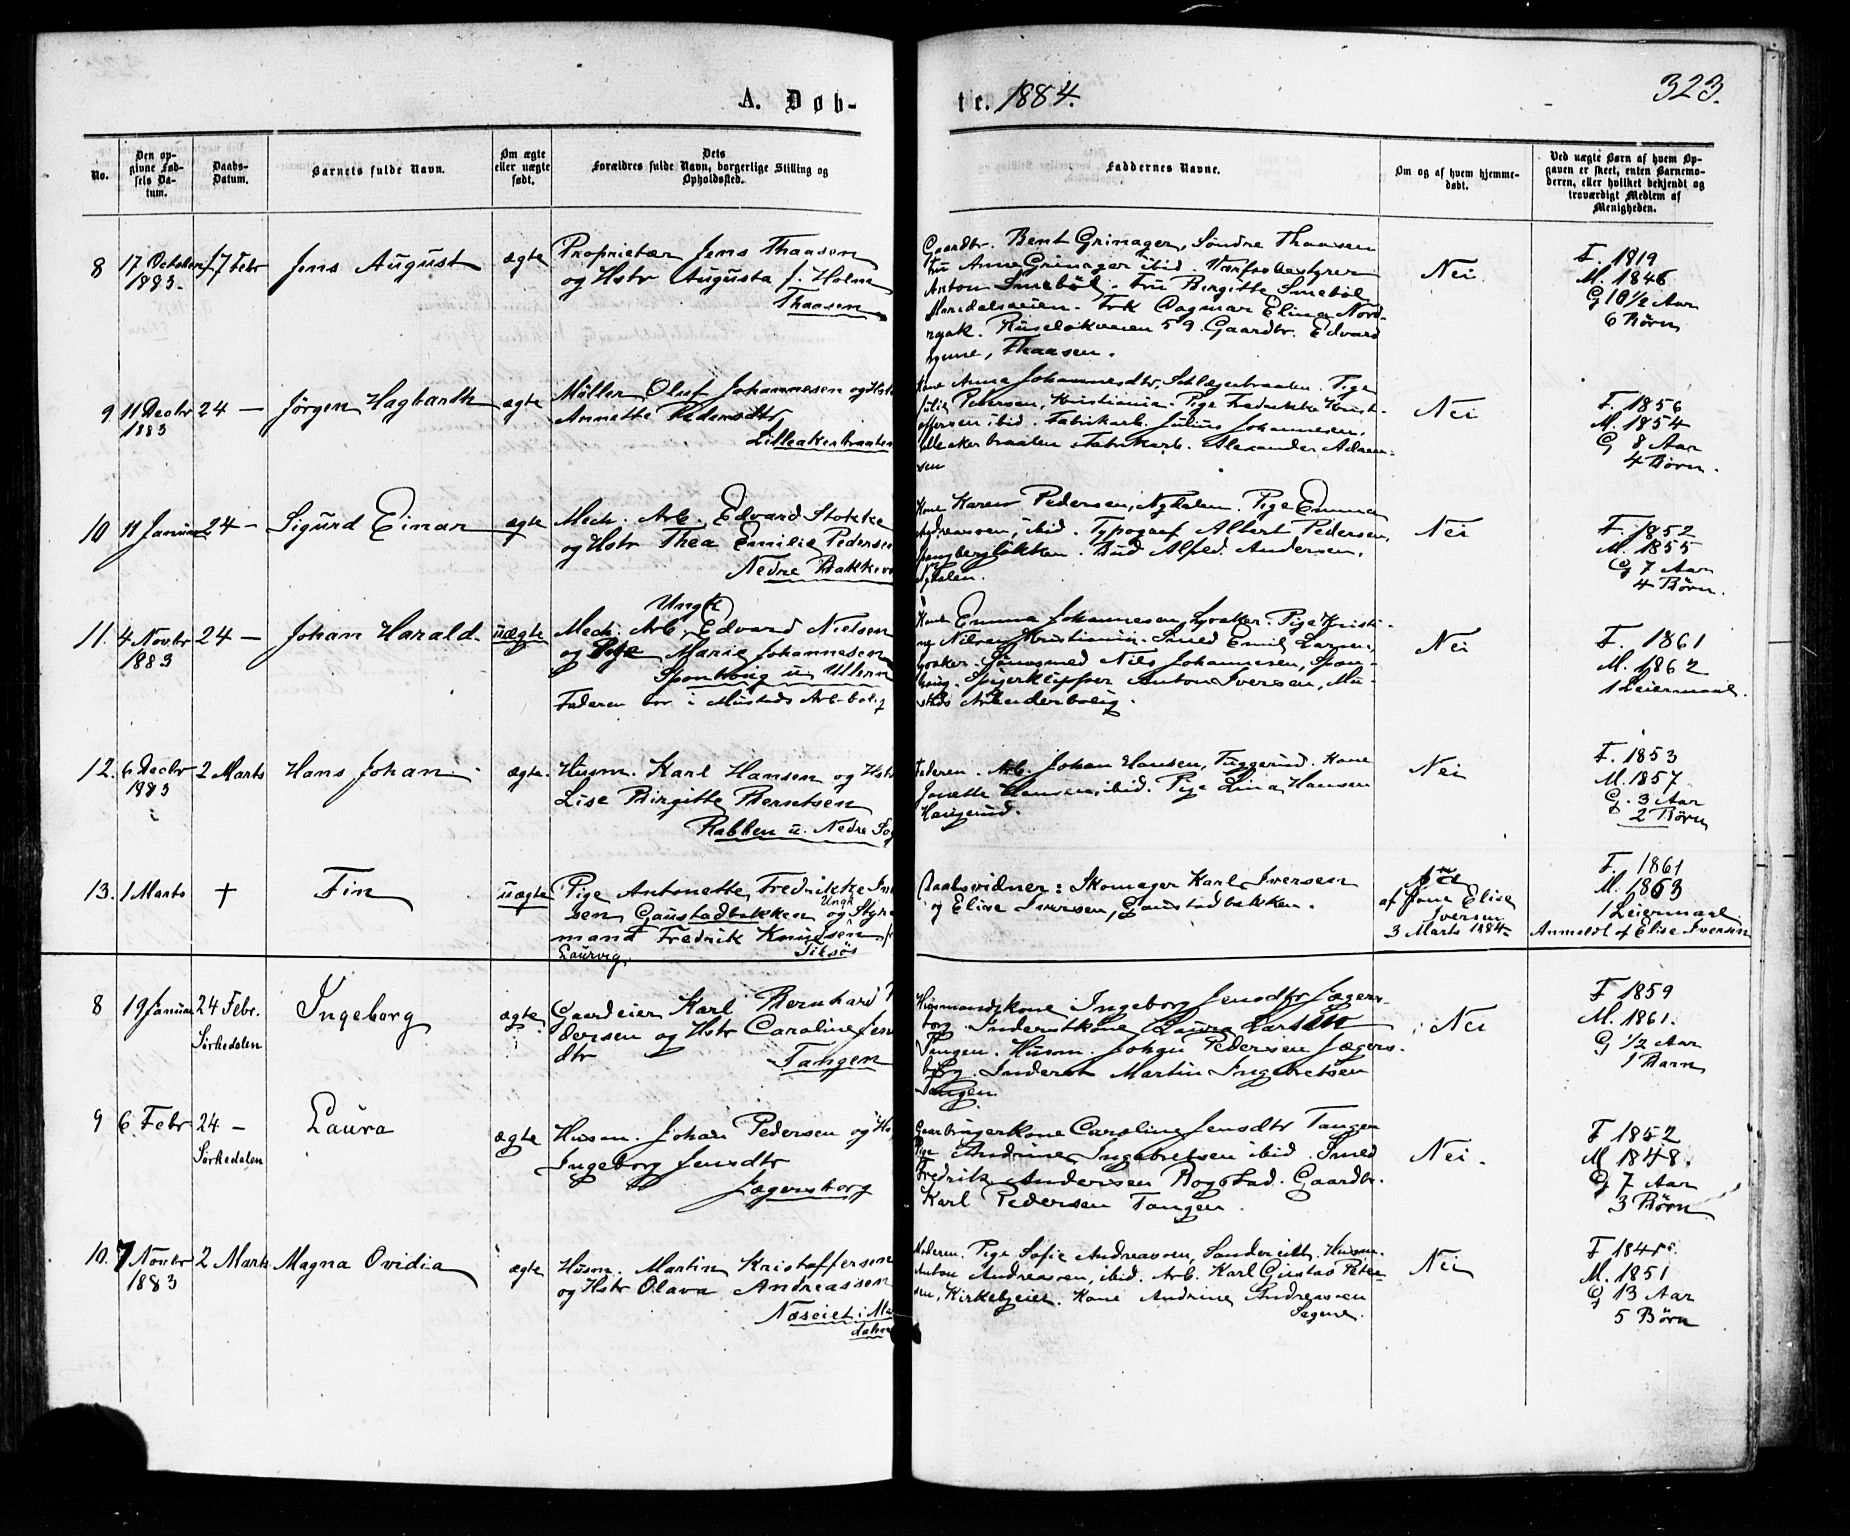 A. Døb-
te. 1884.
323.
No.
Den op-
givne Fød-
sels Da-
tum.
Daabs-
Datum.
Barnets fulde Navn.
Om ægte
eller uægte
født.
Dets
Forældres fulde Navn, borgerlige Stilling og
Opholdssted.
Faddernes Navne.
Om og af hvem hjemme-
døbt.
Ved uægte Børn af hvem Op-
gaven er skeet, enten Barnemo-
deren, eller hvilket bekjendt og
troværdigt Medlem af
Menigheden.
8
17 October
1883.
17 Febr
Jens August
ægte
Proprietær Jens Thaasen
og Hstr Augusta f. Holm
Thaasen
Gaardbr. Bent Grimager, Søndre Thaasen
Fru Anne Grimager ibid. Værksbestyrer
Anton Smebøl. Fru Birgitte Smebøl
Maridalsveien. Frk Dagmar Elina Nord-
Ruseløkveien 59. Gaardbr. Edvard
Thaasen.
Nei
F. 1819
M. 1846
G 10½ Aar
6 Børn
9
11 Decbr
1883
24 —
Jørgen Hagbarth
ægte
Møller Oluf Johannesen og Hstr
Annette Pedersdtr
Lilleakerbraaten
Kone Anna Johannesdtr, Pige
Julie Petersen, Kristiania. Pige Fredrikke Krist-
offersen ibid. Fabrikarb. Julius Johannesen,
Lilleakerbraaten. Fabrikarb. Alexander Adam-
sen
Nei
F. 1856
M. 1854
G 8 Aar
4 Børn.
10
11 Januar
24 —
Sigurd Einar
ægte
Mech. Arb. Edvard Stokke
og Hstr Thea Emilie Pedersen
Nedre Bakke
Kone Karen Pedersen, Nydalen. Pige Emma
Andreassen, ibid. Typograf Albert Pedersen,
Bud Alfred Andersen,
Nydalen.
Nei
F. 1852
M. 1855
G 7 Aar
4 Børn.
11.
4 Novbr
1883
24 —
Johan Harald
uægte
Ungk
Mech. Arb. Edvard Nielsen
og Pige Marie Johannesen
Sponhoug u. Ullern
Faderen bor i Mustads Arb-bolig
Kone Emma Johannesen, Lysaker. Pige Kristi-
ne Nilsen Kristiania. Smed Emil Larsen,
Lysaker. Nils Johannesen, Spon-
houg. Spigerklipper Anton Iversen, Mu-
stads Arbeiderbolig.
Nei
F. 1861
M. 1862
1 Leiermaal.
12.
6 Decbr
1883
2 Marts
Hans Johan
ægte.
Husm. Karl Hansen og Hstr
Lise Birgitte Berntsen
Rabben u. Nedre
Faderen. Arb. Johan Hansen, Fuggerud. Kone
Jonette Hansen, ibid. Pige Lina Hansen
Haugerud.
Nei
F. 1853
M. 1857
G. 3 Aar
2 Børn
13.
1 Marts
+
Fin
uægte
Pige Antonette Fredrikke
sen Gaustadbakken og Ungk Styr-
mand Fredrik Knudsen
Laurvig. Tilsøs
Daabsvidner: Skomager Karl Iversen
og Elise Iversen, Gaustadbakken.
af Kone Elise
Iversen
3 Marts 1884
F. 1861
M. 1863
1 Leiermaal
Anmeldt af Elise Iversen
8
19 Januar
24 Febr.
Sørkedalen
Ingeborg
ægte
Gaardeier Karl Bernhard
dersen og Hstr Caroline Jens
dtr
Tangen
Husmandskone Ingeborg Jensdtr Jægers-
borg. Inderstkone Laura Larsen
Tangen. Husm. Johan Pedersen Jægers-
borg. Inderst Martin Ingebretsen
Tangen.
Nei
F 1859
M. 1861.
G ½ Aar
1 Barn
9
6 Febr
24 —
Sørkedalen
Laura
ægte
Husm. Johan Pedersen og Hstr
Ingeborg Jensdtr
Jægersborg
Gaardbrugerkone Caroline Jensdtr Tangen
Pige Andrine Ingebretsen ibid. Smed
Fredrik Andersen Bogstad. Gaardbr.
Karl Pedersen Tangen.
Nei.
F 1852
M 1848.
G 7 Aar
3 Børn
10.
7 Novbr
1883
2 Marts
Magna Ovidia
ægte
Husm. Martin Kristoffersen
og Hstr Olava Andreassen
Næseiet i Ma
dalen
Moderen. Pige Sofie Andreassen, Husm.
Anton Andreassen, ibid. Arb. Karl Gustav Peter-
sen, Kirkebyeiet. Kone Andrine Andreassen
Sagene.
Nei
F 1845.
M. 1851
G 13 Aar
5 Børn